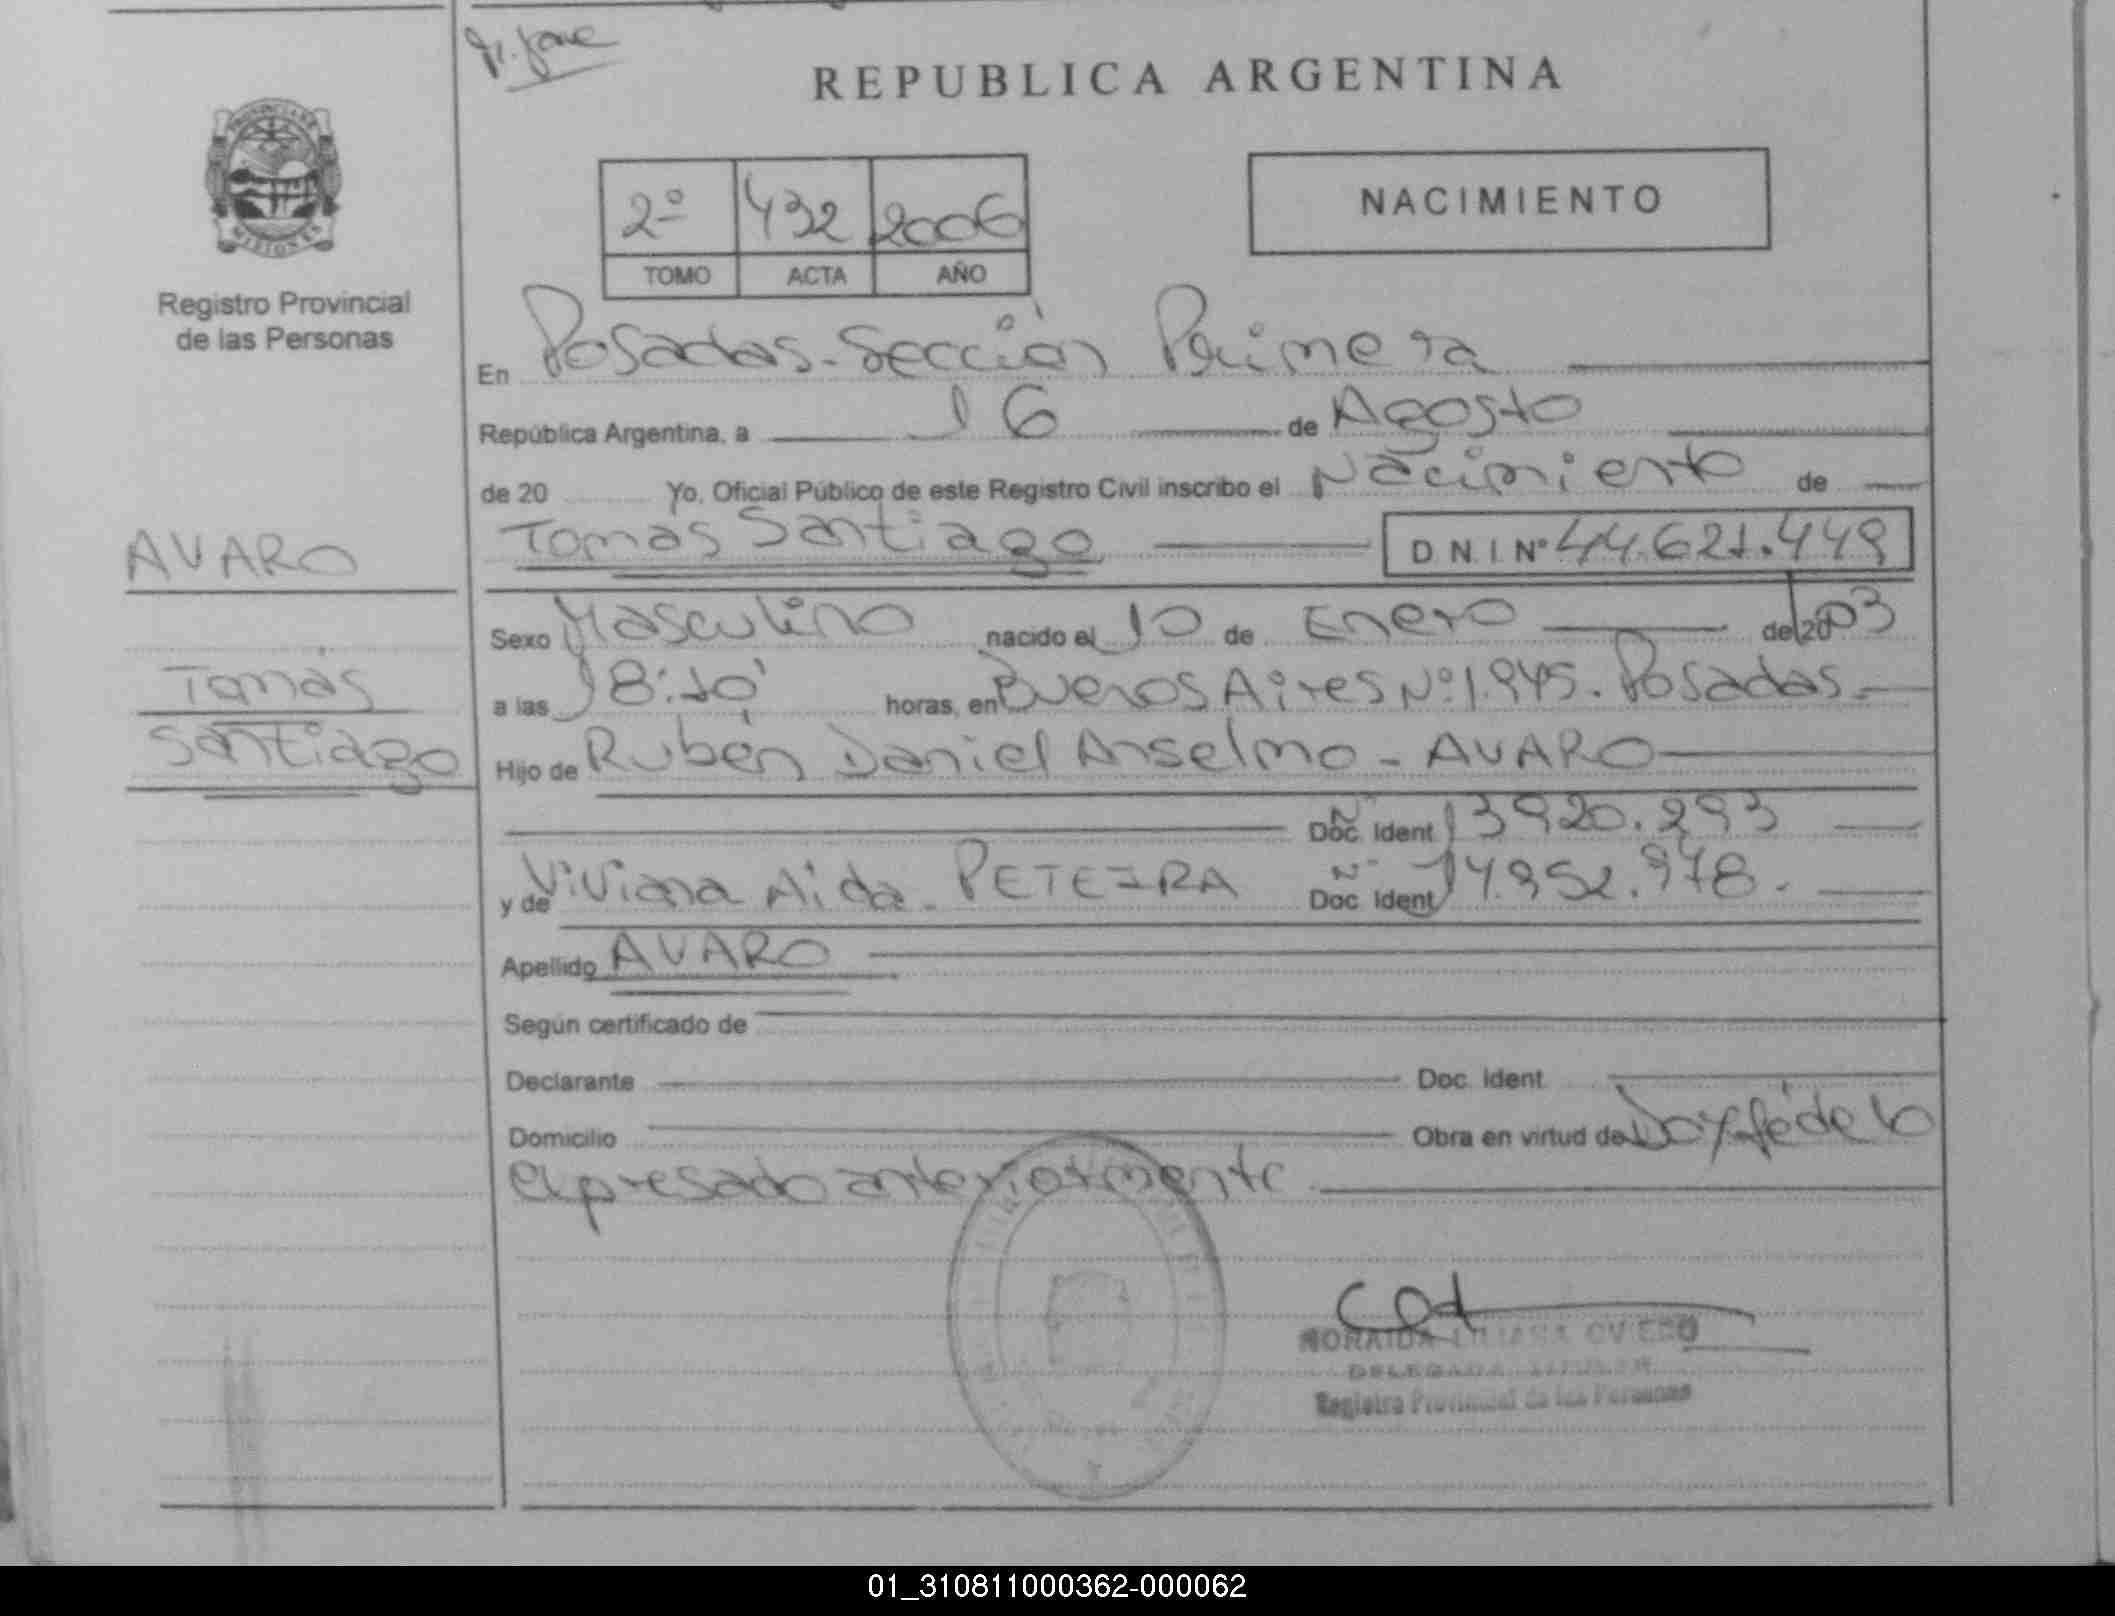 REPUBLICA ARGENTINA
PROVINCIA DE
MISIONES
Registro Provincial
de las Personas
2º 432 2006
TOMO ACTA AÑO
NACIMIENTO
En Posadas - Sección Primera
República Argentina, a 16 de Agosto
de 20 Yo, Oficial Público de este Registro Civil inscribo el Nacimiento de
Tomás Santiago D.N.I Nº 44.621.449
AVARO
Tomás
Santiago
Sexo Masculino nacido el 10 de Enero de 2003
a las 18:10' horas, en Buenos Aires Nº 1.945. Posadas.
Hijo de Rubén Daniel Anselmo - AVARO
Doc. Ident Nº 13920.293
y de Viviana Aida - PETEIRA Doc. Ident Nº 14.952.978.
Apellido AVARO
Según certificado de
Declarante Doc. Ident.
Domicilio Obra en virtud de Doy fé de lo
expresado anteriormente
NORAIDA LILIANA OVIEDO
DELEGADA TITULAR
Registro Provincial de las Personas
01_310811000362-000062